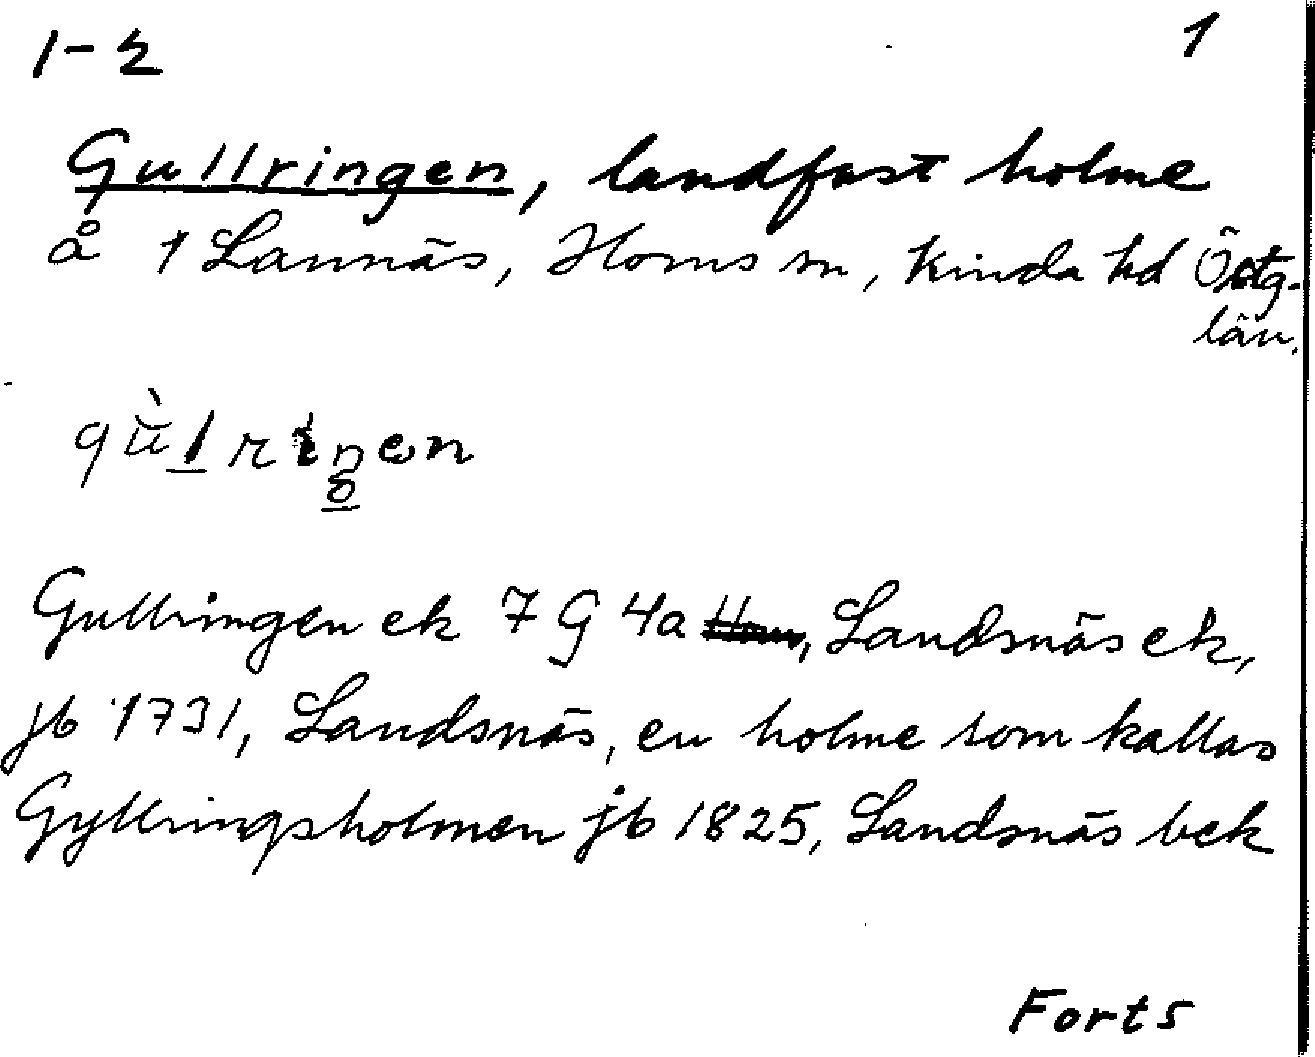 1-2 1
Gullringen, landfast holme
å 1 Lannäs, Horns sn, Kinda hd Östg.
län.
Gullringen ek 7 G 4a, Landsnäs ek,
jb 1731, Landsnäs, en holme som kallas
Gyllringsholmen jb 1825, Landsnäs bek
Forts